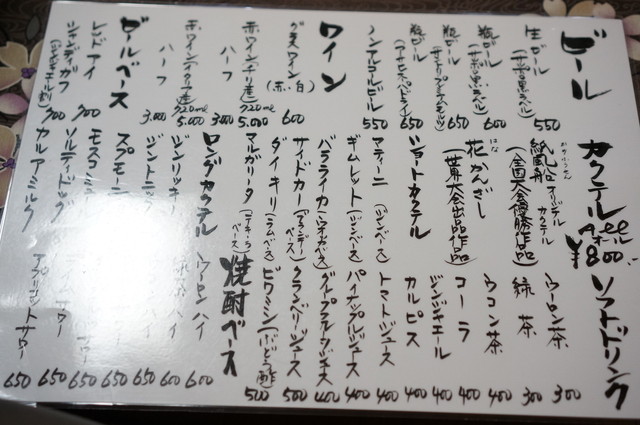 ビール
生ビール
(サッポロ黒ラベル)
550
瓶ビール
(サッポロ黒ラベル)
600
瓶ビール
(サントリープレミアムモルツ)
650
瓶ビール
(アサヒスーパードライ)
650
ノンアルコールビール
550
ワイン
グラスワイン
(赤・白)
600
赤ワイン(チリ産)
720ml
5.000
ハーフ
3.000
赤ワイン(イタリア産)
720ml
5.000
ハーフ
3.000
ビールベース
レッドアイ
700
シャンディガフ
(ジンジャエール割)
700
カクテル
Allオール
¥800
紙風船
かみふうせん
オリジナルカクテル
(全国大会優勝作品)
花かんざし
はな
(世界大会出品作品)
ショートカクテル
マティーニ
(ジンベース)
ギムレット(ジンベース)
バラライカ(ウォッカベース)
サイドカー(ブランデーベース)
ダイキリ(ラムベース)
マルガリータ
(テキーラベース)
ロングカクテル
ジンリッキー
ジントニック
スプモーニ
モスコミュ
ソルティドッグ
カルアミルク
ソフトドリンク
ウーロン茶
300
緑茶
300
ウコン茶
400
コーラ
400
ジンジャエール
400
カルピス
400
トマトジュース
400
パイナップルジュース
400
グレープフルーツジュース
400
クランベリージュース
500
ビワミン(ぶどう酢)
500
焼酎ベース
ウーロンハイ
600
ハイ
600
ハイ
650
650
サワー
650
サワー
650
アプリコットサワー
650